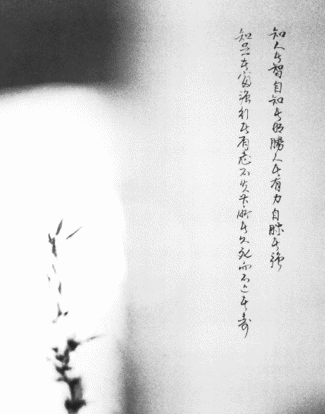 知人者智自知者明勝人者有力自勝者強
知足者富強行者有志不失其所者久死而不亡者壽